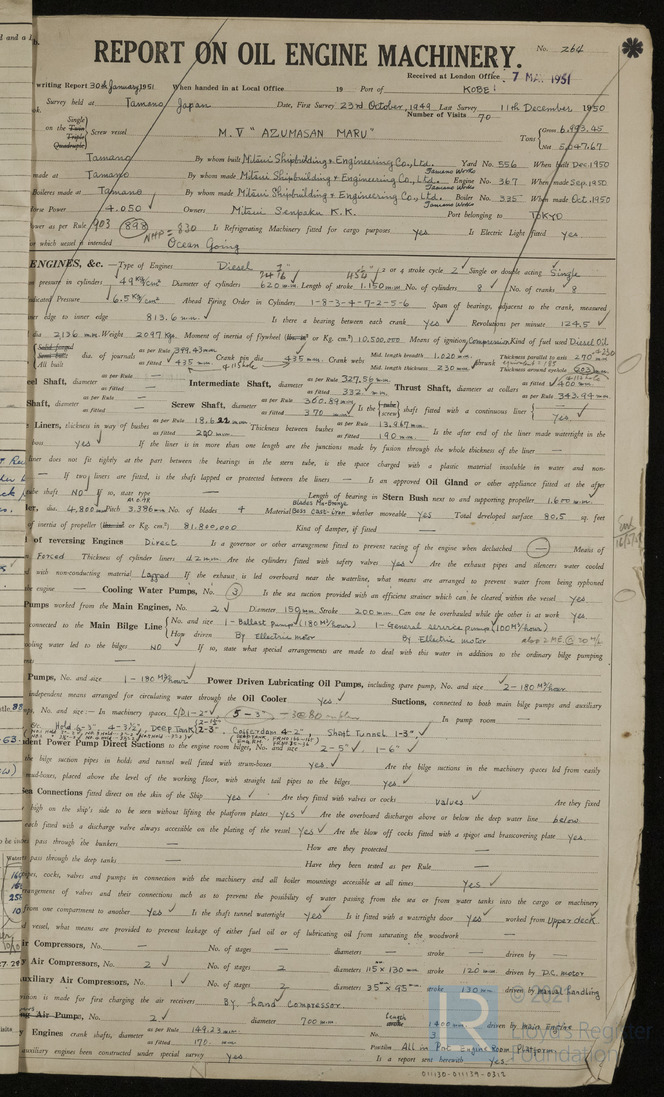 REPORT ON OIL ENGINE MACHINERY.
No. 264
Received at London Office 7 MAR 1951
writing Report 30th January 1951 When handed in at Local Office 19 Port of KOBE
Survey held at Tamano, Japan Date, First Survey 23rd October, 1949 Last Survey 11th December 1950
Number of Visits 70
Single
on the Twin Triple Quadruple Screw vessel M.V "AZUMASAN MARU" Tons Gross 6,993.45 Net 5,047.67
Tamano By whom built Mitsui Shipbuilding & Engineering Co., Ltd. Yard No. 556 When built Dec. 1950
made at Tamano By whom made Mitsui Shipbuilding & Engineering Co., Ltd. Tamano Works Engine No. 367 When made Sep. 1950
Boilers made at Tamano By whom made Mitsui Shipbuilding & Engineering Co., Ltd. Tamano Works Boiler No. 335 When made Oct. 1950
Horse Power 4,050 Owners Mitsui Senpaku K.K. Port belonging to TOKYO
Power as per Rule 903 898 NHP = 830 Is Refrigerating Machinery fitted for cargo purposes yes Is Electric Light fitted yes
for which vessel is intended Ocean Going
ENGINES, &c. — Type of Engines Diesel 2 or 4 stroke cycle 2 Single or double acting Single
pressure in cylinders 49 Kg/cm² Diameter of cylinders 620 mm. Length of stroke 1.150 mm. No. of cylinders 8 No. of cranks 8
Indicated Pressure 6.5 Kg/cm² Ahead Firing Order in Cylinders 1-8-3-4-7-2-5-6 Span of bearings, adjacent to the crank, measured
inner edge to inner edge 813.6 mm. Is there a bearing between each crank yes Revolutions per minute 124.5
dia 2,136 mm. Weight 2097 Kgs. Moment of inertia of flywheel 10,500,000 Means of ignition Compression Kind of fuel used Diesel Oil
dia. of journals as per Rule 399.43 mm. as fitted 435 mm. Crank pin dia 435 mm. Crank webs Mid. length breadth 1,020 mm. Mid. length thickness 230 mm. shrunk Thickness parallel to axis 270 mm. Thickness around eyehole
Wheel Shaft, diameter as per Rule — as fitted — Intermediate Shaft, diameter as per Rule 327.56 mm. as fitted 332 mm. Thrust Shaft, diameter at collars as fitted 400 mm. 343.94 mm.
Shaft, diameter as per Rule — as fitted — Screw Shaft, diameter as per Rule 360.89 mm. as fitted 370 mm. Is the tube screw shaft fitted with a continuous liner yes
Liners, thickness in way of bushes as per Rule as fitted 200 mm Thickness between bushes as per Rule 13.967 mm as fitted 190 mm. Is the after end of the liner made watertight in the
boss yes If the liner is in more than one length are the junctions made by fusion through the whole thickness of the liner —
liner does not fit tightly at the part between the bearings in the stern tube, is the space charged with a plastic material insoluble in water and non-
— If two liners are fitted, is the shaft lapped or protected between the liners — Is an approved Oil Gland or other appliance fitted at the after
tube shaft NO If so, state type — Length of bearing in Stern Bush next to and supporting propeller 1,600 mm.
dia. 4,800 mm Pitch 3,386 mm No. of blades 4 Material Blades Mn-Bronze Boss Cast-iron whether moveable yes Total developed surface 80.5 sq. feet
of inertia of propeller 81,800,000 Kind of damper, if fitted —
of reversing Engines Direct Is a governor or other arrangement fitted to prevent racing of the engine when declutched — Means of
Forced Thickness of cylinder liners 42 mm. Are the cylinders fitted with safety valves yes Are the exhaust pipes and silencers water cooled
with non-conducting material Lagged If the exhaust is led overboard near the waterline, what means are arranged to prevent water from being syphoned
the engine — Cooling Water Pumps, No. 3 Is the sea suction provided with an efficient strainer which can be cleared within the vessel yes
Pumps worked from the Main Engines, No. 2 Diameter 150 mm Stroke 200 mm. Can one be overhauled while the other is at work yes
connected to the Main Bilge Line No. and size 1 - Ballast pump (180 M³/hours) 1 - General service pump (100 M³/hours)
How driven By Ellectric motor By Ellectric motor
cooling water led to the bilges NO If so, state what special arrangements are made to deal with this water in addition to the ordinary bilge pumping
—
Pumps, No. and size 1 - 180 M³/hour Power Driven Lubricating Oil Pumps, including spare pump, No. and size 2 - 180 M³/hour
independent means arranged for circulating water through the Oil Cooler yes Suctions, connected to both main bilge pumps and auxiliary
No. and size:— In machinery spaces 5-3" In pump room —
Hold 6-3" 4-3½" Deep Tank 2-3" Cofferdam 4-2" Shaft Tunnel 1-3"
Independent Power Pump Direct Suctions to the engine room bilges, No. and size 2-5" 1-6"
the bilge suction pipes in holds and tunnel well fitted with strum-boxes yes Are the bilge suctions in the machinery spaces led from easily
mud-boxes, placed above the level of the working floor, with straight tail pipes to the bilges yes
Sea Connections fitted direct on the skin of the Ship yes Are they fitted with valves or cocks valves Are they fixed
high on the ship's side to be seen without lifting the platform plates yes Are the overboard discharges above or below the deep water line below
each fitted with a discharge valve always accessible on the plating of the vessel yes Are the blow off cocks fitted with a spigot and brass covering plate yes
pipes pass through the bunkers — How are they protected —
pipes pass through the deep tanks — Have they been tested as per Rule —
pipes, cocks, valves and pumps in connection with the machinery and all boiler mountings accessible at all times yes
arrangement of valves and their connections such as to prevent the possibility of water passing from the sea or from water tanks into the cargo or machinery
from one compartment to another yes Is the shaft tunnel watertight yes Is it fitted with a watertight door yes worked from Upper deck
vessel, what means are provided to prevent leakage of either fuel oil or of lubricating oil from saturating the woodwork —
Air Compressors, No. — No. of stages — diameters — stroke — driven by —
Air Compressors, No. 2 No. of stages 2 diameters 115 x 130 mm stroke 120 mm. driven by D.C. motor
Auxiliary Air Compressors, No. 1 No. of stages 2 diameters 35 x 95 mm stroke 130 mm driven by manual handling
provision is made for first charging the air receivers By hand Compressor.
Air Pumps, No. 2 diameter 700 mm length stroke 1400 mm driven by main Engine
Engines crank shafts, diameter as per Rule 149.23 mm as fitted 170 mm. No. 3 Position All in Port Engine Room Platform
auxiliary engines been constructed under special survey yes Is a report sent herewith yes
011130-011139-0312
LR © 2021
Lloyd's Register
Foundation